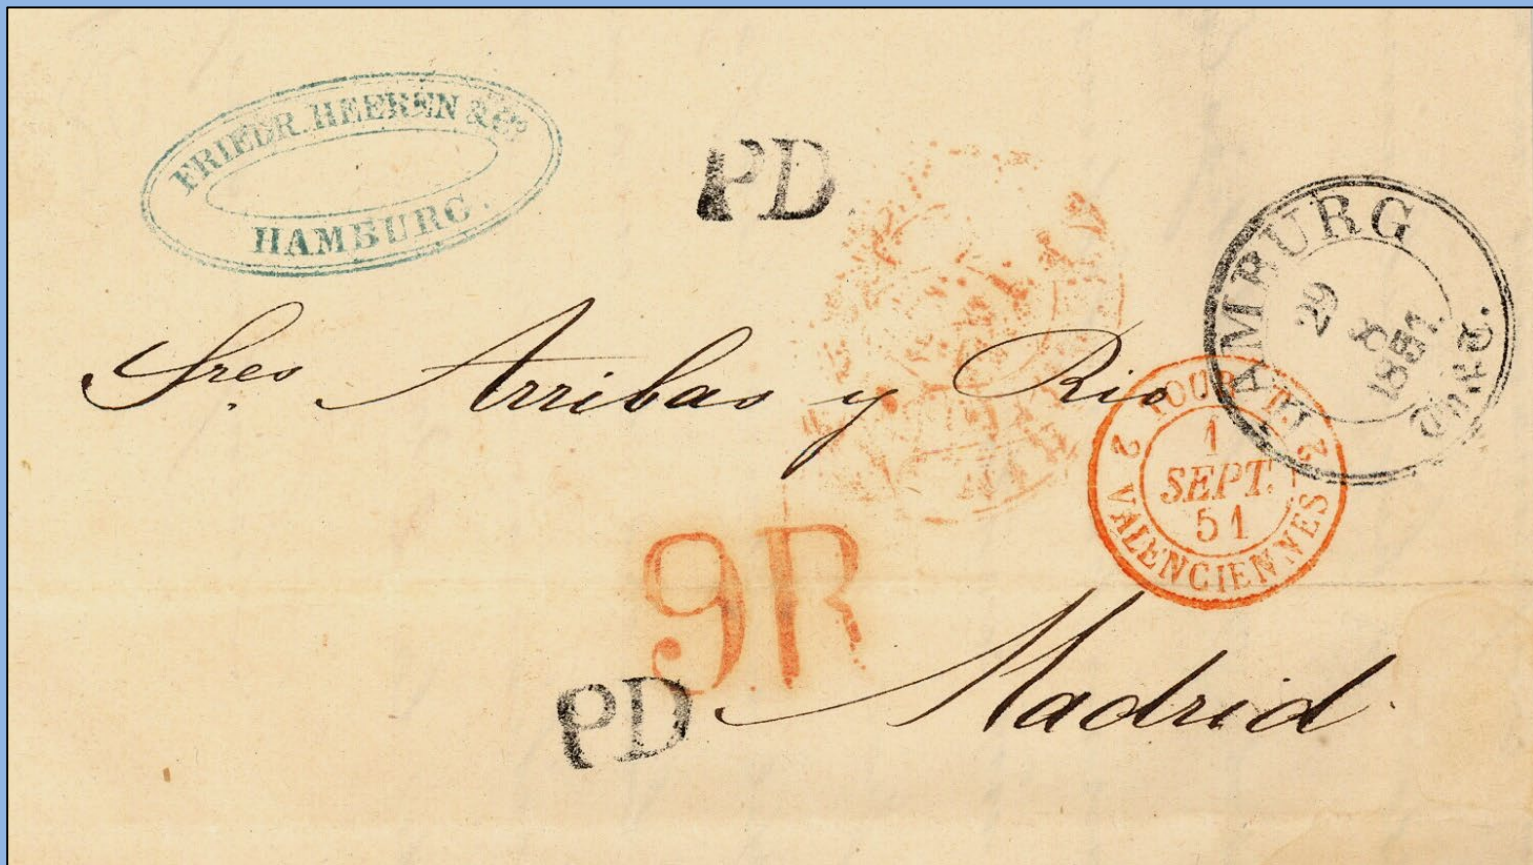 FRIEDR. HEEREN & Co.
HAMBURG.
PD
HAMBURG
29
8
1851.
Sres Arribas y Rio
TOUR-T.
2 2
1
SEPT.
51
VALENCIENNES
9R
PD
Madrid.